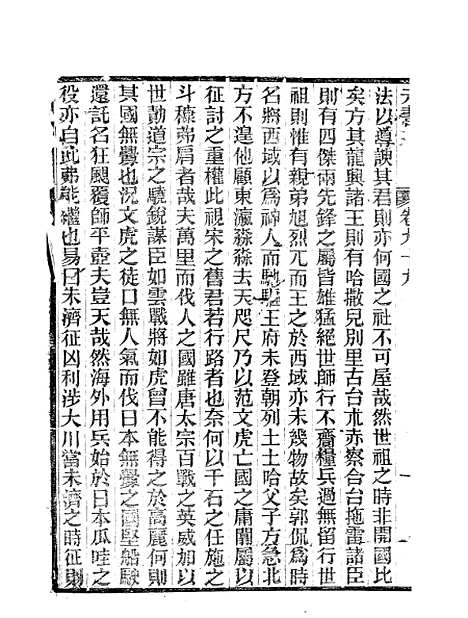 元書
卷九十九
法以導諛其君則亦何國之社不可屋哉然世祖之時非開國比
矣方其龍興諸王則有哈撒兒別里古台朮赤察合台拖雷諸臣
則有四傑兩先鋒之屬皆雄猛絕世師行不齎糧兵過無留行世
祖則惟有親弟旭烈兀而王之於西域亦未幾物故矣郭侃爲時
名將西域以爲神人而馳驅王府未登朝列土土哈父子方急北
方不遑他顧東瀛淼淼去天咫尺乃以范文虎亡國之庸閫屬以
征討之重權此視宋之舊君若行路者也奈何以千石之任施之
斗穅弗肩者哉夫萬里而伐人之國雖唐太宗百戰之英威加以
世勣道宗之驍銳謀臣如雲戰將如虎曾不能得之於高麗何則
其國無釁也況文虎之徒口無人氣而伐日本無釁之國堅船駛
還託名狂颶覆師平壺夫豈天哉然海外用兵始於日本瓜哇之
役亦自此弗能繼也易曰未濟征凶利涉大川當未濟之時征則